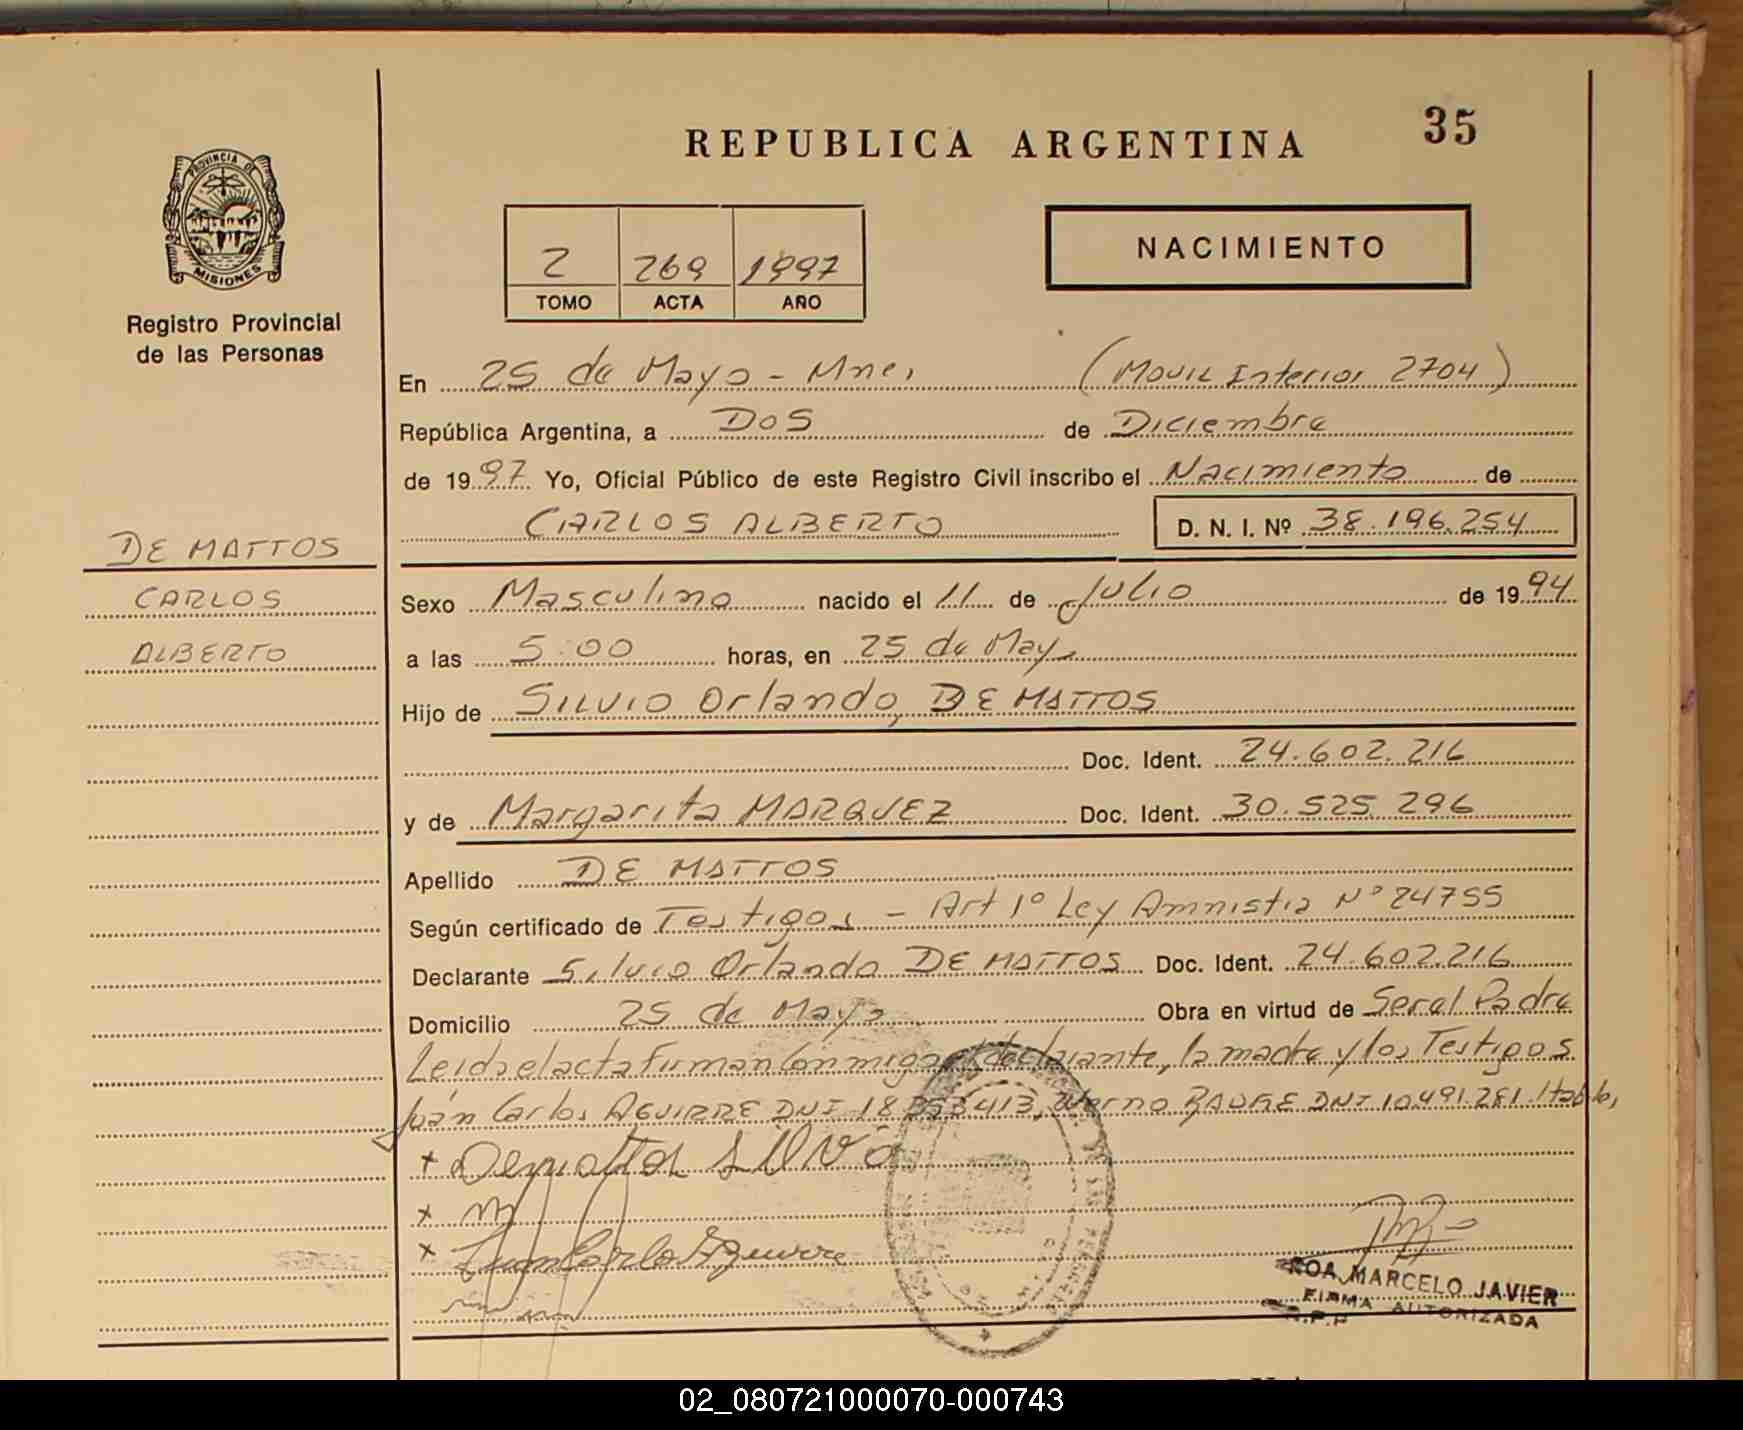 REPUBLICA ARGENTINA
35
PROVINCIA DE
MISIONES
Registro Provincial
de las Personas
2 269 1997
TOMO ACTA AÑO
NACIMIENTO
En 25 de Mayo - Mnes (Movil Interior 2704)
República Argentina, a DOS de Diciembre
de 1997 Yo, Oficial Público de este Registro Civil inscribo el Nacimiento de
CARLOS ALBERTO D. N. I. Nº 38.196.254
DE MATTOS
CARLOS
ALBERTO
Sexo Masculino nacido el 11 de Julio de 1994
a las 5:00 horas, en 25 de Mayo
Hijo de Silvio Orlando, DE MATTOS
Doc. Ident. 24.602.216
y de Margarita MARQUEZ Doc. Ident. 30.525.296
Apellido DE MATTOS
Según certificado de Testigos - Art 1º Ley Amnistia Nº 24755
Declarante Silvio Orlando DE MATTOS Doc. Ident. 24.602.216
Domicilio 25 de Mayo Obra en virtud de Ser el Padre
Leida el acta firman conmigo el declarante, la madre y los Testigos
Juán Carlos AGUIRRE DNI 18 413, DNI 10.491.281
x Demattos Silvio
x
x Juan Carlos Aguirre
ROA, MARCELO JAVIER
FIRMA AUTORIZADA
R.P.P
02_080721000070-000743